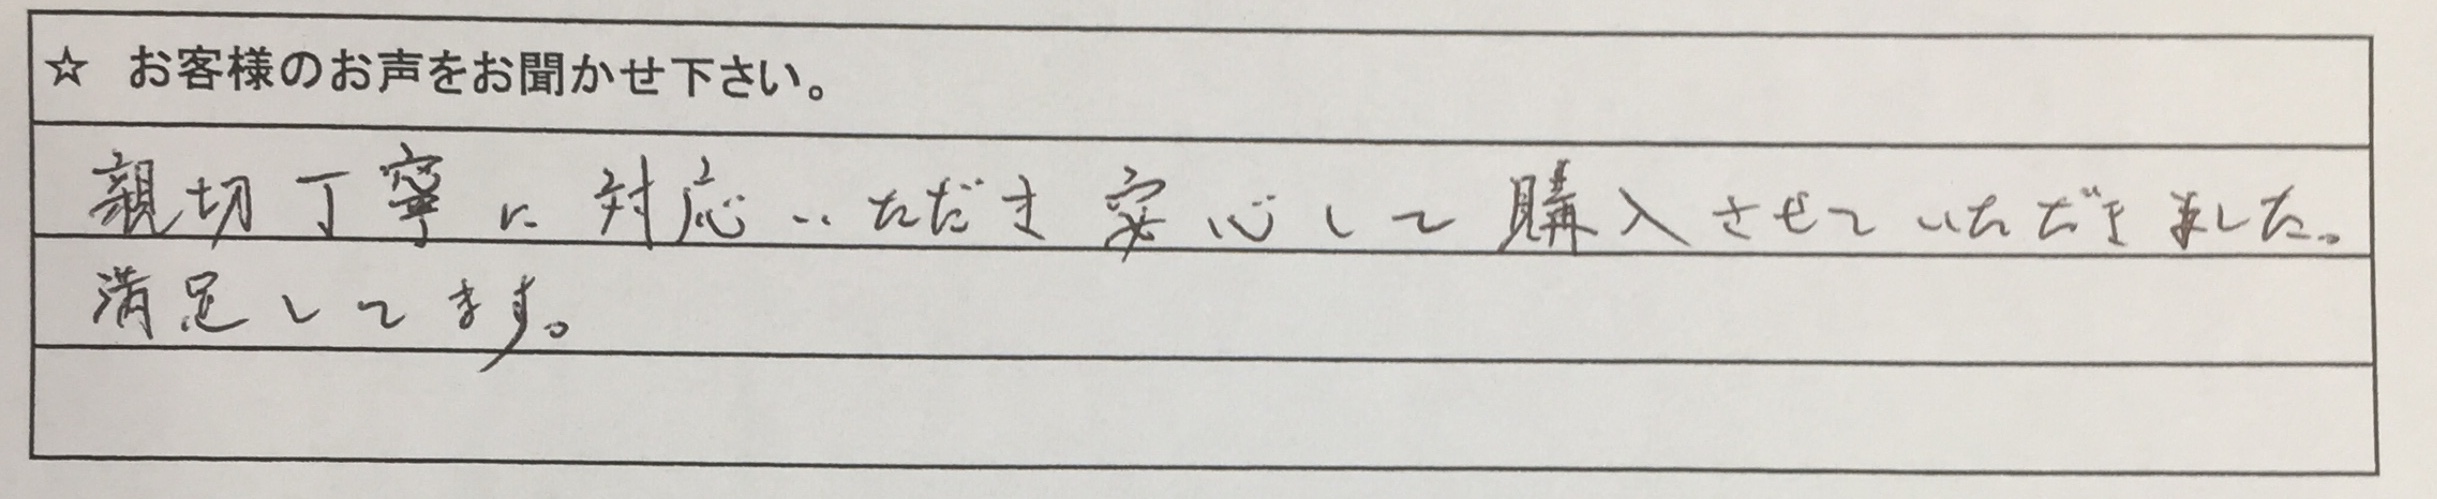 ☆ お客様のお声をお聞かせ下さい。
親切丁寧に対応いただき安心して購入させていただきました。
満足してます。